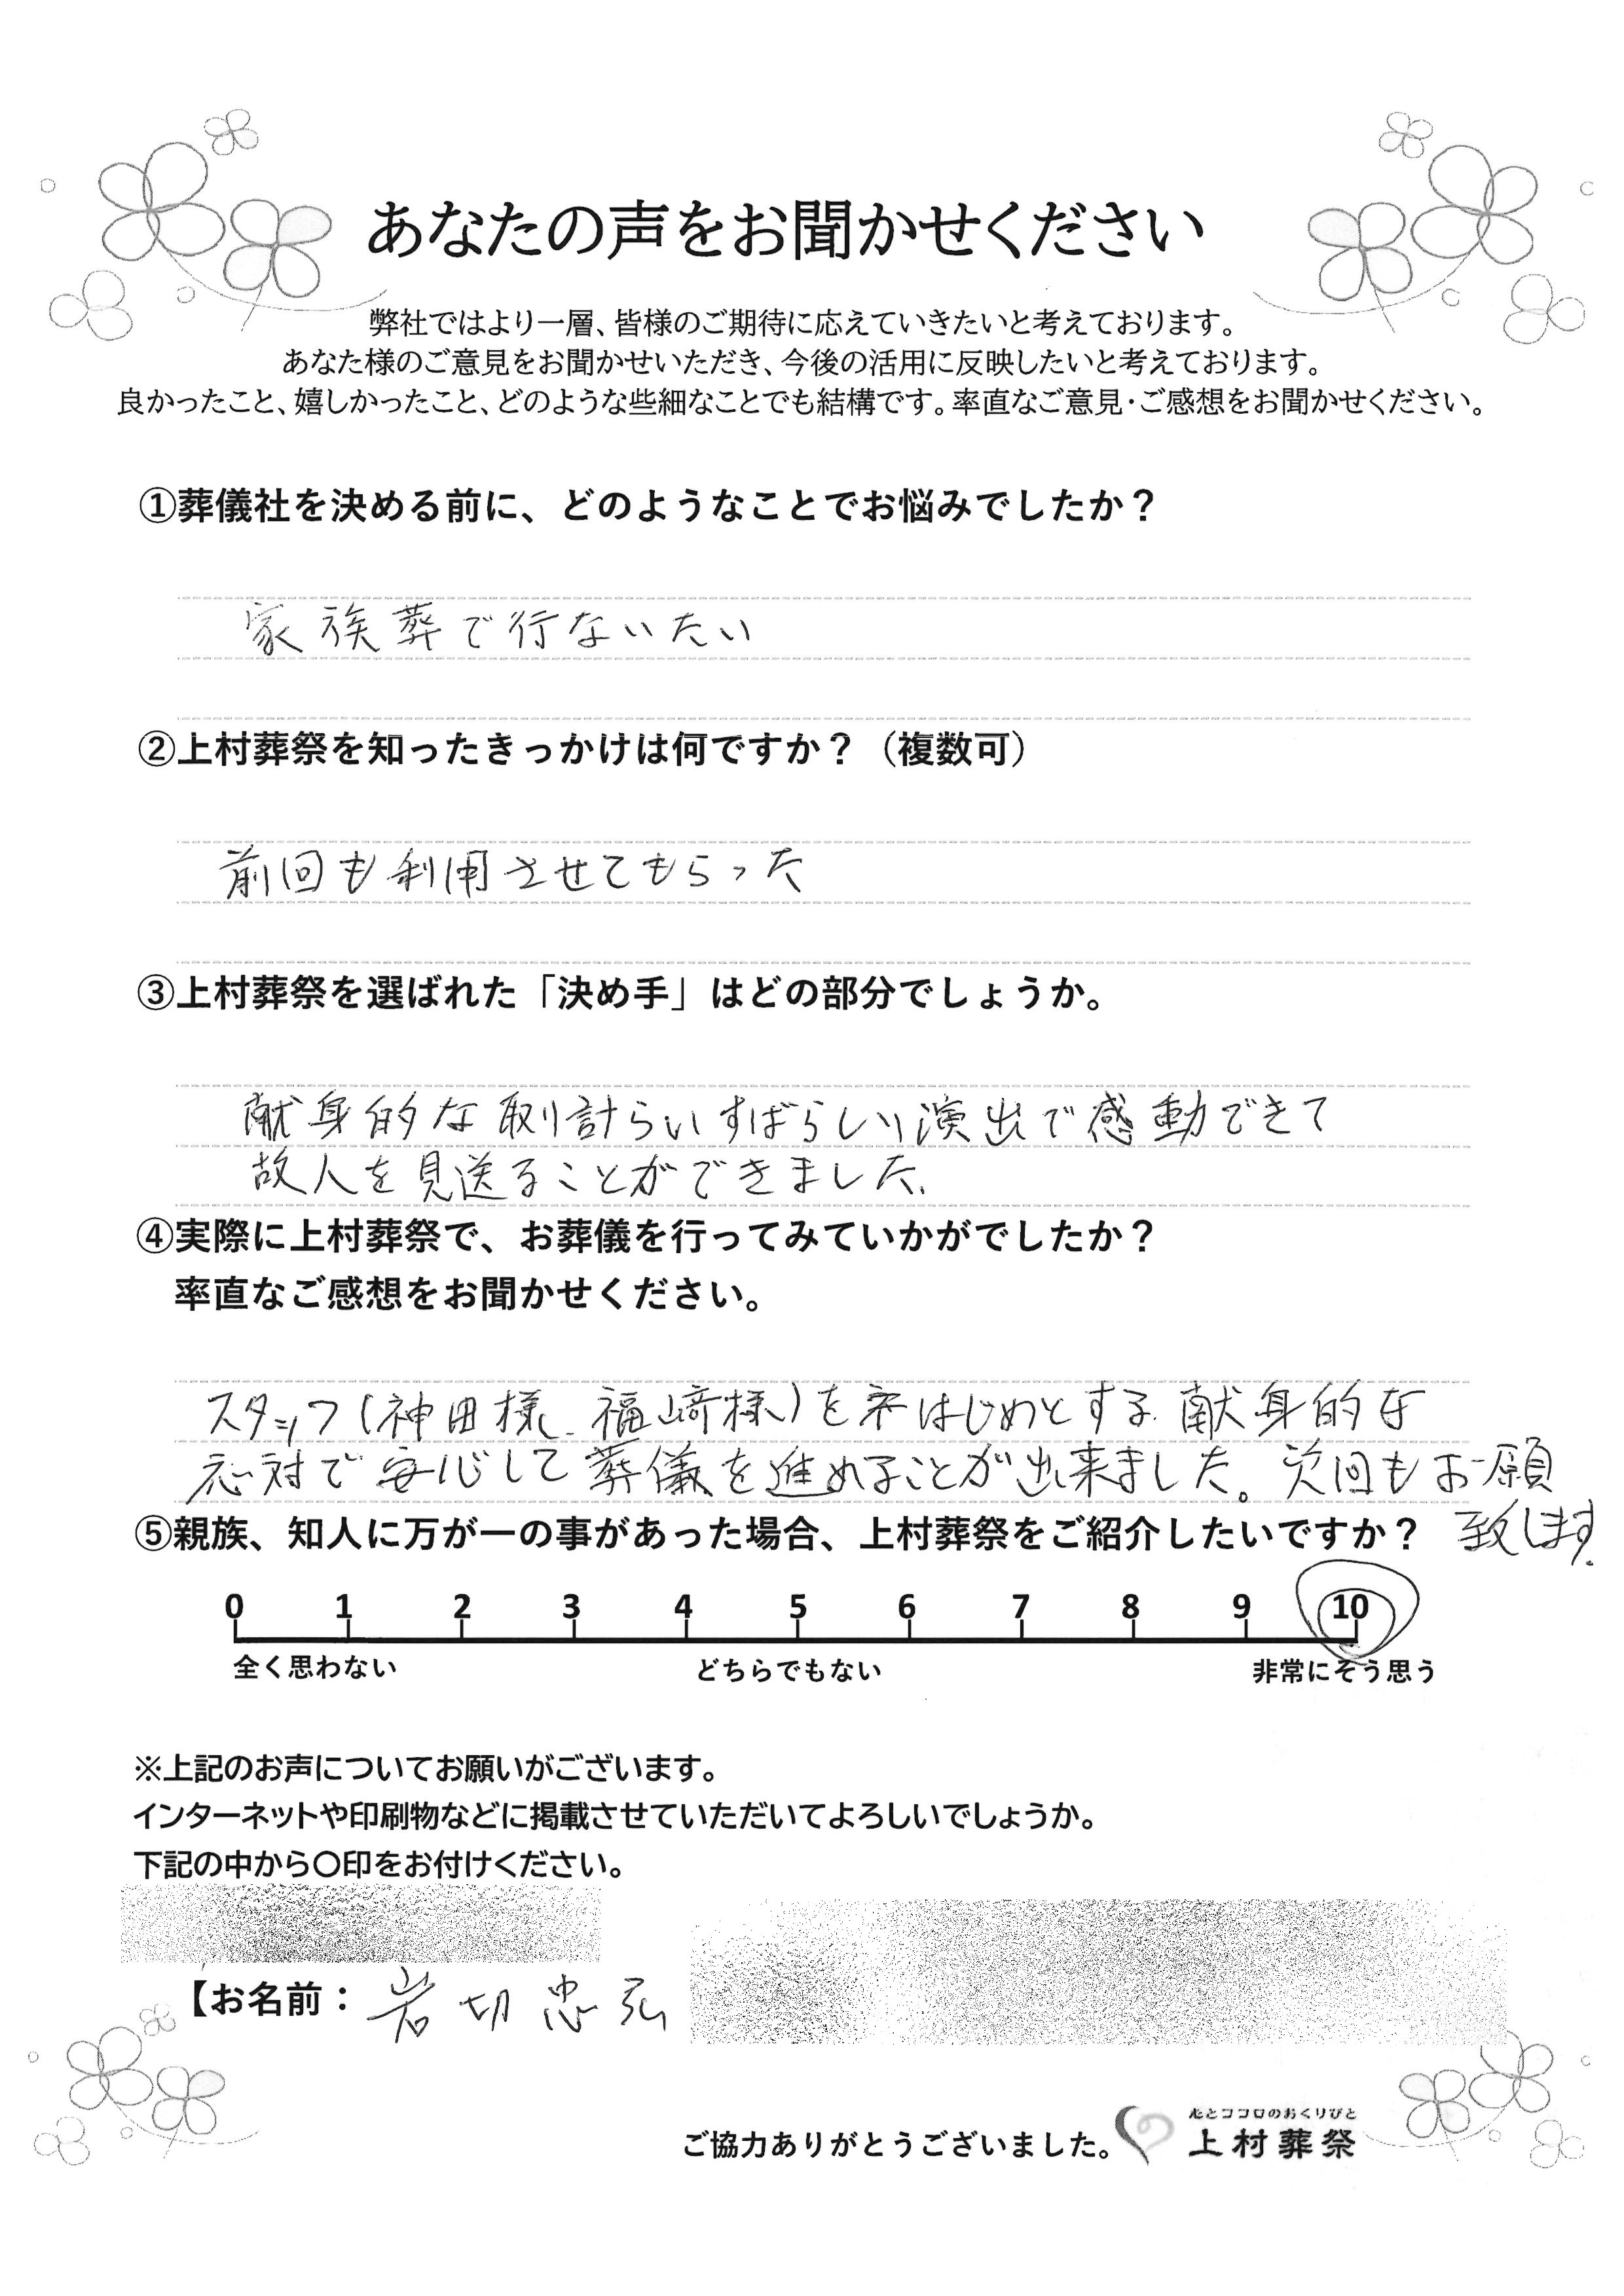 あなたの声をお聞かせください
弊社ではより一層、皆様のご期待に応えていきたいと考えております。
あなた様のご意見をお聞かせいただき、今後の活用に反映したいと考えております。
良かったこと、嬉しかったこと、どのような些細なことでも結構です。率直なご意見・ご感想をお聞かせください。
①葬儀社を決める前に、どのようなことでお悩みでしたか？
家族葬で行ないたい
②上村葬祭を知ったきっかけは何ですか？（複数可）
前回も利用させてもらった
③上村葬祭を選ばれた「決め手」はどの部分でしょうか。
献身的な取り計らいすばらしい演出で感動できて
故人を見送ることができました、
④実際に上村葬祭で、お葬儀を行ってみていかがでしたか？
率直なご感想をお聞かせください。
スタッフ(神田様、福﨑様)をはじめとする献身的な
応対で安心して葬儀を進めることが出来ました。次回もお願
致します.
⑤親族、知人に万が一の事があった場合、上村葬祭をご紹介したいですか？
0 1 2 3 4 5 6 7 8 9 10
全く思わない どちらでもない 非常にそう思う
※上記のお声についてお願いがございます。
インターネットや印刷物などに掲載させていただいてよろしいでしょうか。
下記の中から〇印をお付けください。
【お名前：岩切忠弘
ご協力ありがとうございました。
心とココロのおくりびと
上村葬祭